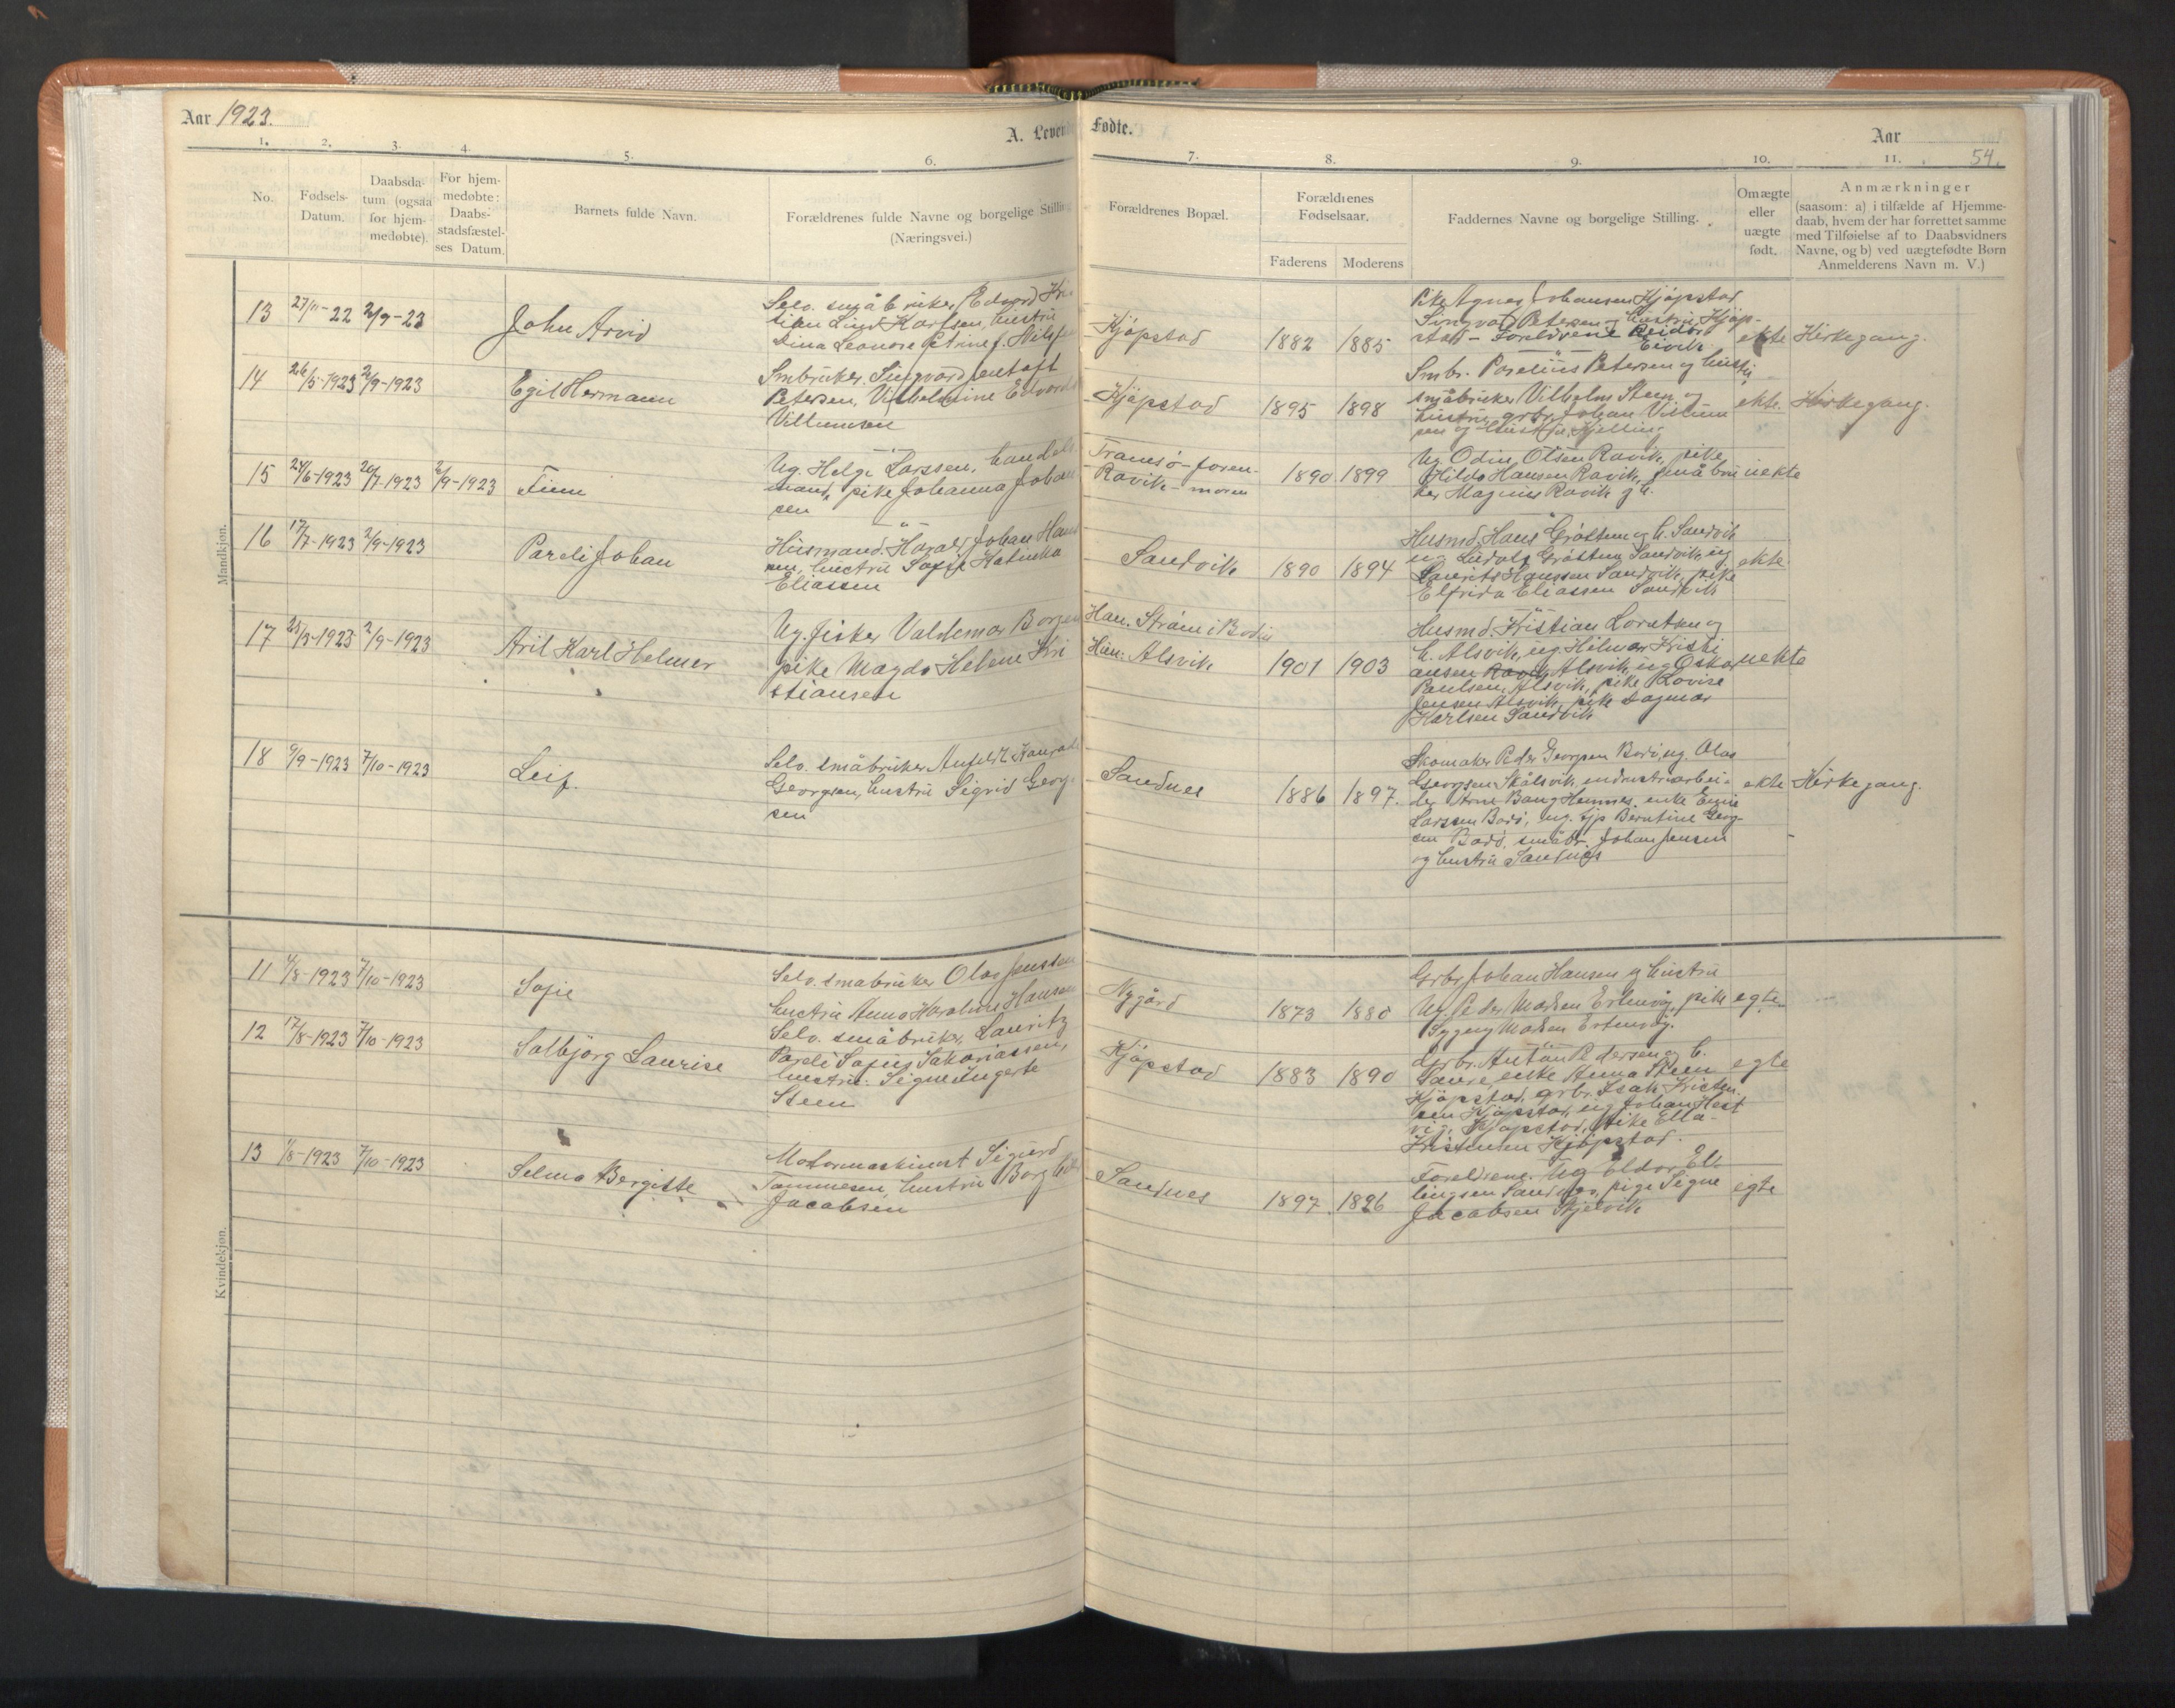 Aar 1923.
A. Levende
Fødte.
Aar
54.
1. 2. 3. 4. 5. 6. 7. 8. 9. 10. 11.
No.
Fødsels-
Datum.
Daabsda-
tum (ogsaa
for hjem-
medøbte).
For hjem-
medøbte:
Daabs-
stadsfæstel-
ses Datum.
Barnets fulde Navn.
Forældrenes fulde Navne og borgelige Stilling
(Næringsvei.)
Forældrenes Bopæl.
Forældrenes
Fødselsaar.
Faderens
Moderens
Faddernes Navne og borgelige Stilling.
Om ægte
eller
uægte
født.
Anmærkninger
(saasom: a) i tilfælde af Hjemme-
daab, hvem der har forrettet samme
med Tilføielse af to Daabsvidners
Navne, og b) ved uægtefødte Børn
Anmelderens Navn m. V.)
Mandkjøn.
13 27/11-22 2/9-23
John Arvid
Selv. småbruker Edvard Kri
stian Lind Karlsen, hustru
Dina Leonore
Kjøpstad
1882 1885
Pike Agnes Johansen Kjøpstad
Singvart Petersen og hustru, Kjøp-
stad - Foreldrene Reidar
Eivik
ekte
Kirkegang.
14 26/5-1923 2/9-1923
Egil Hermann
Smbruker. Singvard Jentoft
Petersen, Vilhelmine Edvarda
Villumsen
Kjøpstad
1895 1898
Smbr. Parelius Petersen og hustru
småbruker Vilhelm Steen og
hustru, grbr. Johan Villum
sen og hustru,
ekte.
Kirkegang.
15 24/6-1923 20/7-1923 2/9-1923
Finn
Ug. Helge Larssen, handels
mand, pike Johanna Johan
sen
Tromsø - faren-
Ravik - moren
1890 1899
Ug Odin Olsen Ravik, pike
Hilda Hansen Ravik, småbru
ker Magnus Ravik og h.
uekte
16 17/7-1923 2/9-1923
Pareli Johan
Husmand. Harald Johan Hans
sen, hustru Sofie Katinka
Eliassen
Sandvik
1890 1894
Husmd. Hans Grøttem og h. Sandvik
ug Ludvig Grøttem Sandvik, ug
Laurits Hanssen Sandvik, pike
Elfrida Eliassen Sandvik
ekte
17 25/3-1923 2/9-1923
Aril Karl Helmer
Ug. fisker Valdemar Borgen
pike Magda Helene Kri
stiansen
Han. Strøm i Bodin
Hun: Alsvik
1901 1903
Husmd. Kristian Lorntsen og
h. Alsvik, ug. Hilmar Kristi
ansen Alsvik, ug Oskar
Paulsen, Alsvik, pike Lovise
Jensen Alsvik, pike Dagmar
Karlsen Sandvik
uekte
18 9/9-1923 7/10-1923
Leif.
Selv. småbruker Anfeldt Konrad
Georgsen, hustru Sigrid Georg-
sen
Sandnes
1886 1897.
Skomaker Peder Georgsen Bodø, ug. Olaf
Georgsen Skålsvik, industriarbei-
der Arne Bang Hemnes, enke Emie
Larssen Bodø, ug. Berntine Georg-
sen Bodø, småbr. Johan Jensen
og hustru Sandnes
ekte
Kirkegang.
Kvindekjøn.
11 4/8-1923 7/10-1923
Sofie
Selv. småbruker Olaf Jenssen
hustru Anna Karoline Hansen
Nygård
1873 1880
Grbr Johan Hansen og hustru
Ug. Peder Madsen Ertenvåg, pike
Sygeny Madsen Ertenvåg.
egte
12 17/8-1923 7/10-1923
Solbjørg Laurise
Selv. småbruker, Lauritz
Pareli Sofus Sakariassen,
hustru. Signe Ingerte
Steen
Kjøpstad
1883 1890
Grbr. Anton Pedersen og h.
Saure, enke Anna Steen
Kjøpstad, grbr. Isak Kristen
sen Kjøpstad, ug Johan Hest
vig, Kjøpstad, pike Ella
Kristensen Kjøpstad.
egte
13 1/8-1923 7/10-1923
Selma Bergitte
Motormaskinist Sigurd
Tommesen, hustru Borghild
Jacobsen
Sandnes
1897 1896
Foreldrene. Ug Eldor El
lingsen Sandnes, pige Signe
Jacobsen Skjelvik
egte